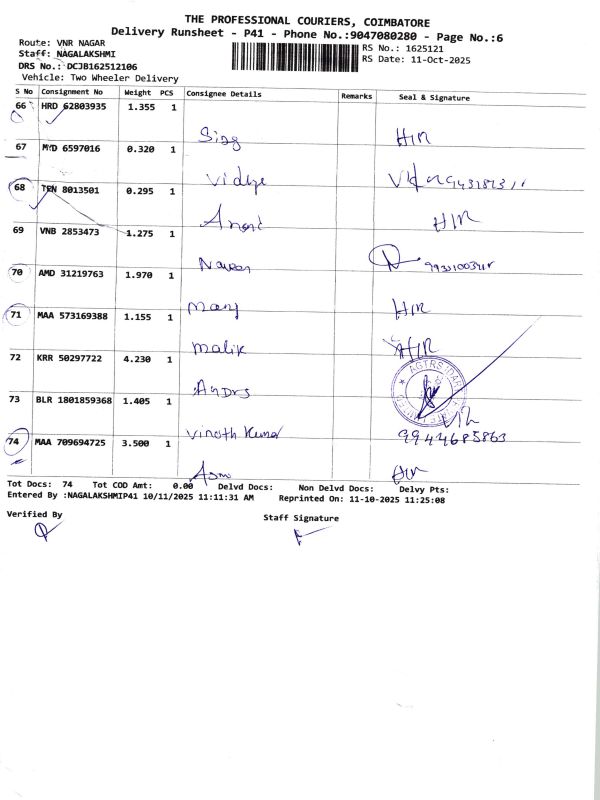 THE PROFESSIONAL COURIERS, COIMBATORE
Delivery Runsheet - P41 - Phone No.:9047080280 - Page No.:6
Route: VNR NAGAR
RS No.: 1625121
Staff: NAGALAKSHMI
RS Date: 11-Oct-2025
DRS No.: DCJB162512106
Vehicle: Two Wheeler Delivery
S No Consignment No Weight PCS Consignee Details Remarks Seal & Signature
66 HRD 62803935 1.355 1
67 MYD 6597016 0.320 1
Vidhya
68 TRN 8013501 0.295 1
Anand
69 VNB 2853473 1.275 1
Naveen
70 AMD 31219763 1.970 1
Manj
71 MAA 573169388 1.155 1
Malik
72 KRR 50297722 4.230 1
73 BLR 1801859368 1.405 1
Vinoth Kumar 9944685863
74 MAA 709694725 3.500 1
Tot Docs: 74 Tot COD Amt: 0.00 Delvd Docs: Non Delvd Docs: Delvy Pts:
Entered By :NAGALAKSHMIP41 10/11/2025 11:11:31 AM Reprinted On: 11-10-2025 11:25:08
Verified By
Staff Signature